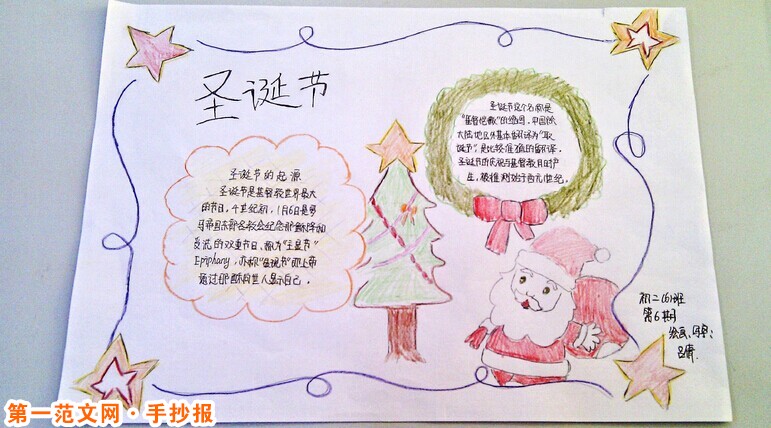 圣诞节
圣诞节的起源
圣诞节是基督教世界最大
的节日。4世纪初，1月6日是罗
马帝国东部各教会纪念耶稣降和
受洗的双重节日、称为“主显节”
Epiphany，亦称“显现节”即上帝
通过耶稣向世人显示自己。
圣诞节这个名称是
“基督弥撒”的缩写，中国
大陆地区基本翻译为“圣
诞节”是比较准确的翻译。
圣诞节的庆祝与基督教同时产
生，被推测始于西元1世纪。
初二(6)班
第6期
绘画、
第一范文网·手抄报